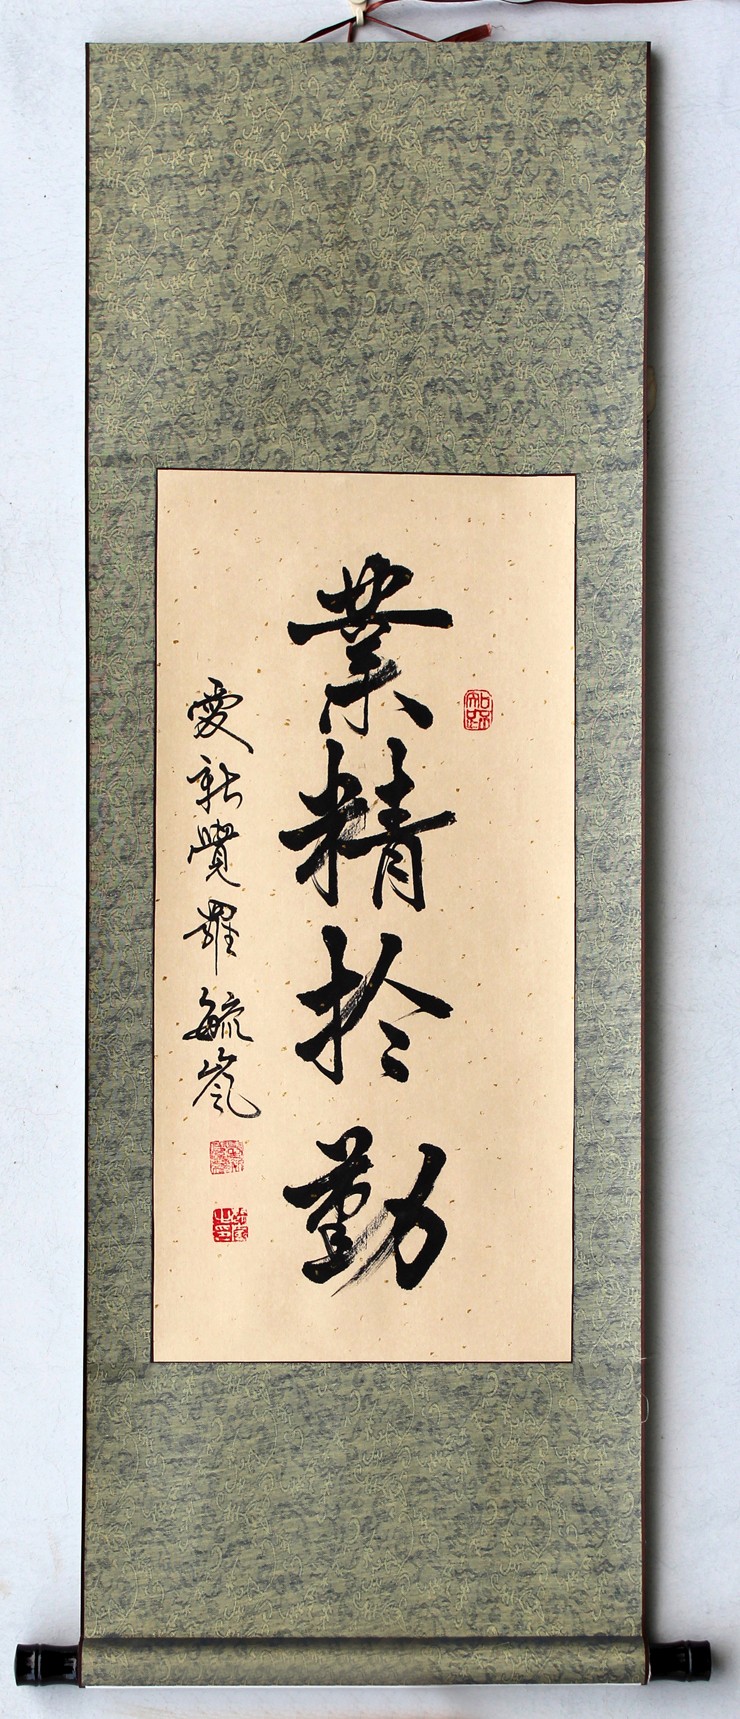 業精於勤
愛新覺羅毓嵐